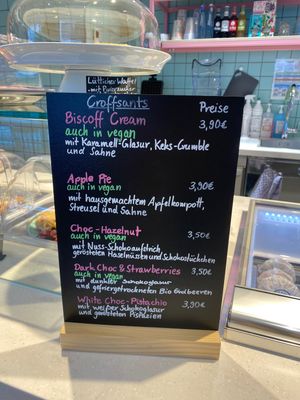 Lütticher Waffel
- mit Puderzucker
Croffsants Preise
Biscoff Cream 3,90€
auch in vegan
mit Karamell-Glasur, Keks-Crumble
und Sahne
Apple Pie
auch in vegan 3,90€
mit hausgemachtem Apfelkompott,
Streusel und Sahne
Choc-Hazelnut 3,50€
auch in vegan
mit Nuss-Schokoaufstrich,
gerösteten Haselnüssen und Schokostückchen
Dark Choc & Strawberries 3,50€
auch in vegan
mit dunkler Schokoglasur
und gefriergetrockneten Bio Erdbeeren
White Choc-Pistachio 3,90€
mit weißer Schokoglasur
und gerösteten Pistazien